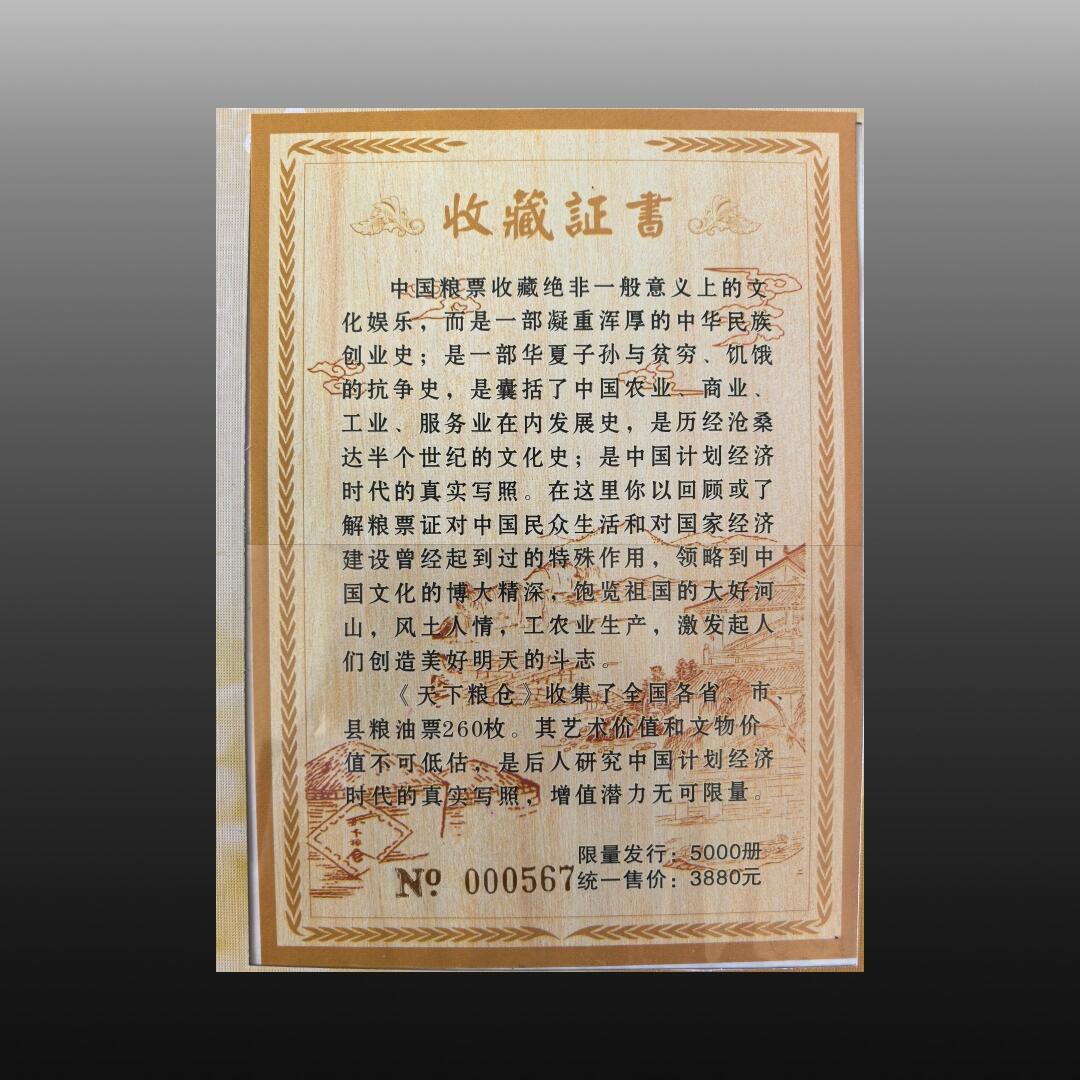 收藏証書
中国粮票收藏绝非一般意义上的文
化娱乐，而是一部凝重浑厚的中华民族
创业史；是一部华夏子孙与贫穷、饥饿
的抗争史，是囊括了中国农业、商业、
工业、服务业在内发展史，是历经沧桑
达半个世纪的文化史；是中国计划经济
时代的真实写照。在这里你以回顾或了
解粮票证对中国民众生活和对国家经济
建设曾经起到过的特殊作用，领略到中
国文化的博大精深，饱览祖国的大好河
山，风土人情，工农业生产，激发起人
们创造美好明天的斗志。
《天下粮仓》收集了全国各省、市、
县粮油票260枚。其艺术价值和文物价
值不可低估，是后人研究中国计划经济
时代的真实写照，增值潜力无可限量。
限量发行：5000册
№ 000567统一售价：3880元